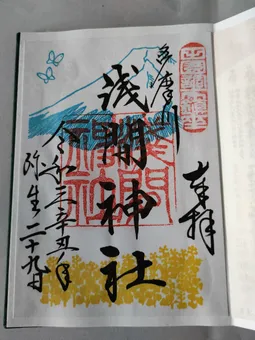 奉拝
多摩川
浅間神社
令和三辛丑年
弥生二十九日